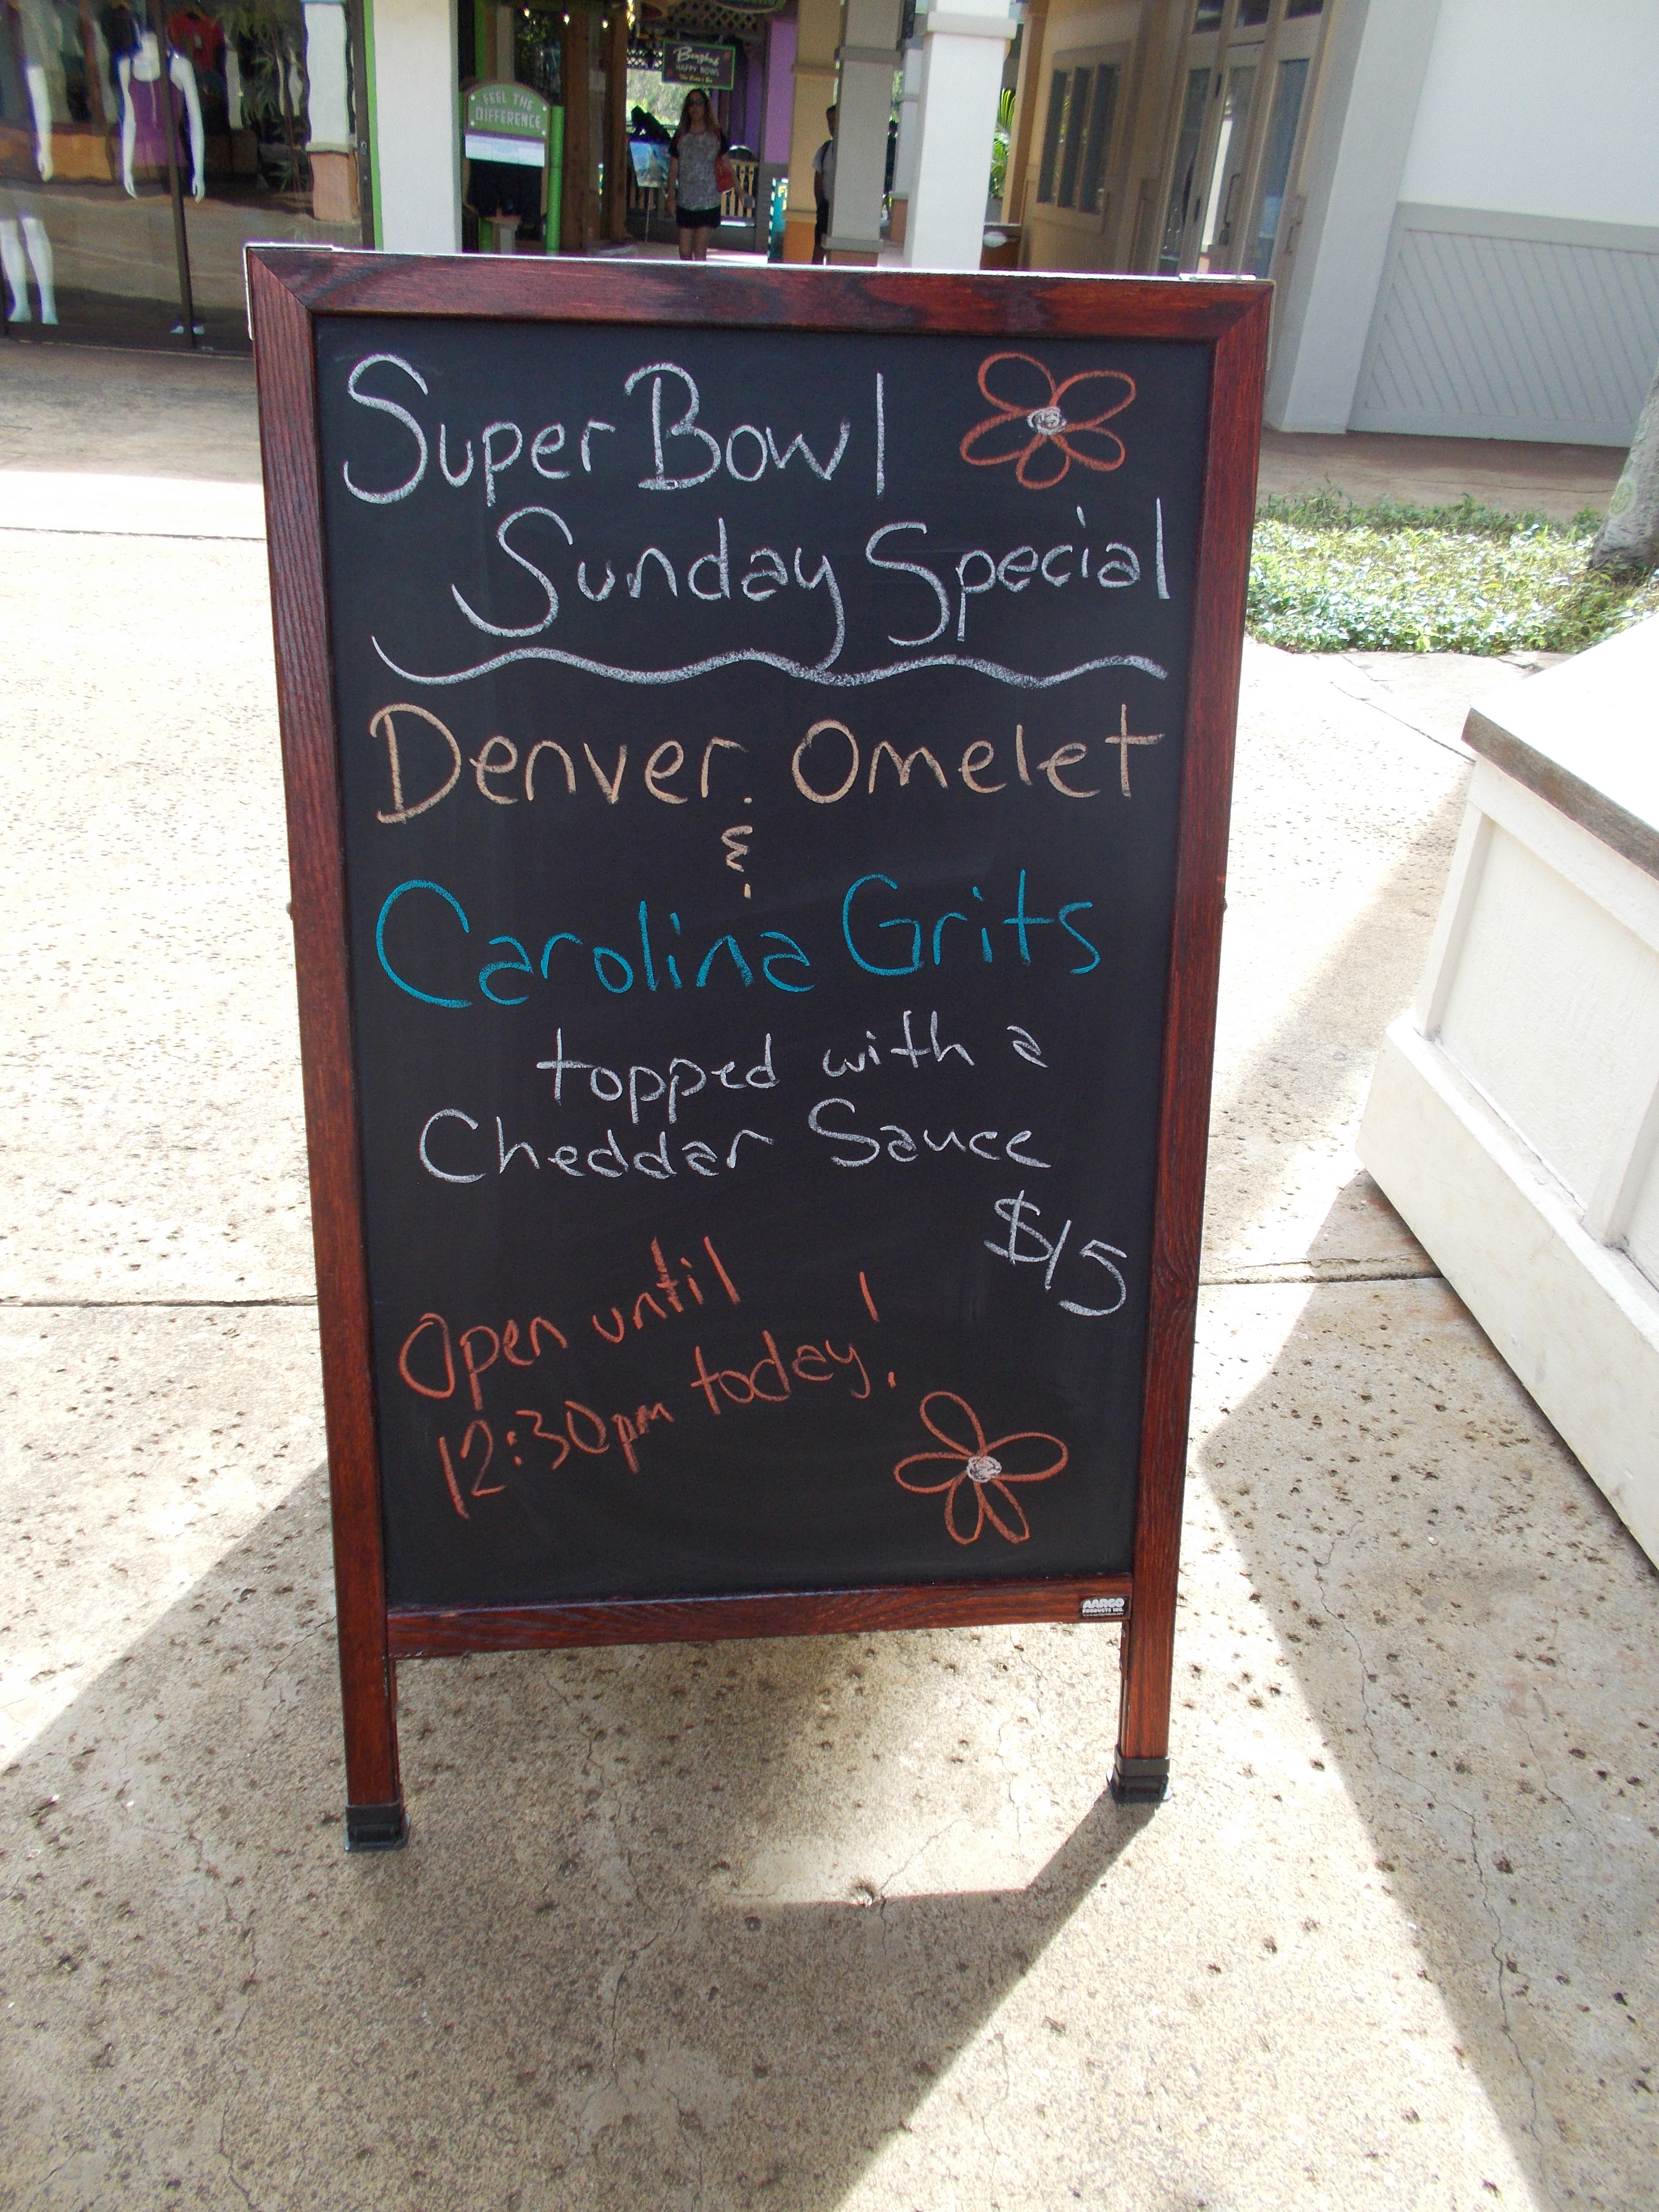 Bangkok
HAPPY BOWL
FEEL THE
DIFFERENCE
Super Bowl
Sunday Special
Denver Omelet
&
Carolina Grits
topped with a
Cheddar Sauce
$15
Open until
12:30pm today!
AARCO
PRODUCTS INC.